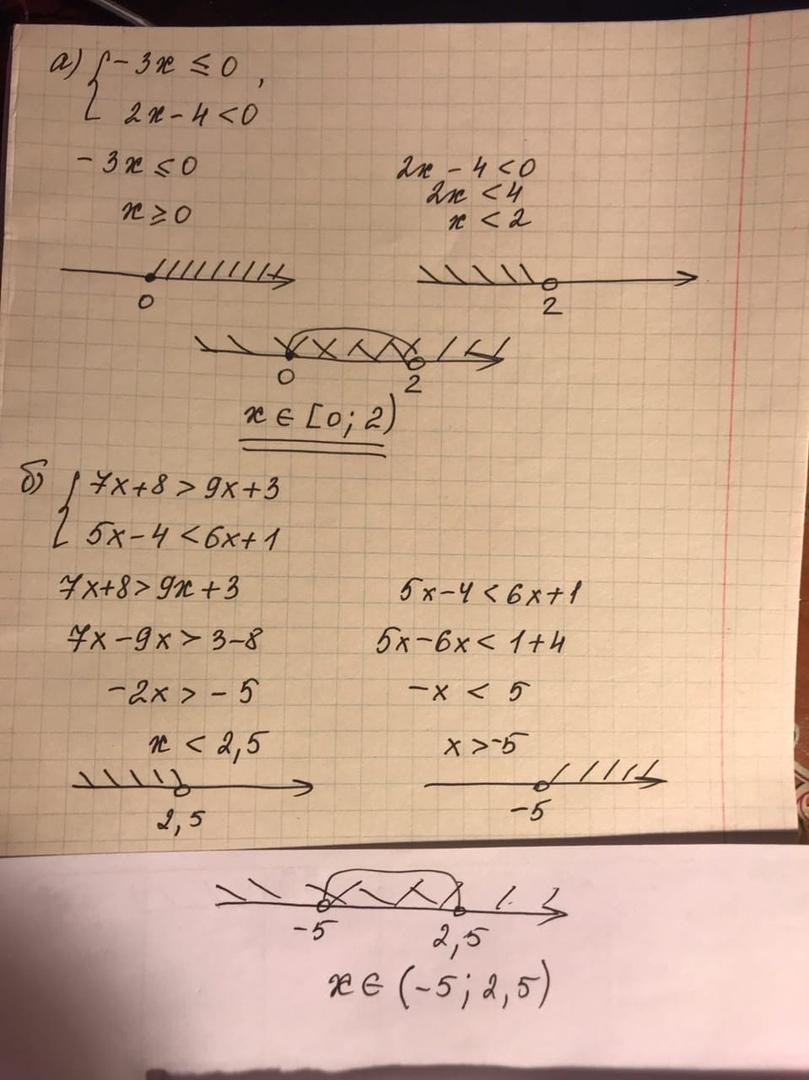 а) { -3x ≤ 0 ,
2x - 4 < 0
-3x ≤ 0
x ≥ 0
2x - 4 < 0
2x < 4
x < 2
0
2
0 2
x ∈ [0; 2)
б) { 7x+8 > 9x+3
5x-4 < 6x+1
7x+8 > 9x+3
7x-9x > 3-8
-2x > -5
x < 2,5
5x-4 < 6x+1
5x-6x < 1+4
-x < 5
x > -5
2,5
-5
-5 2,5
x ∈ (-5; 2,5)